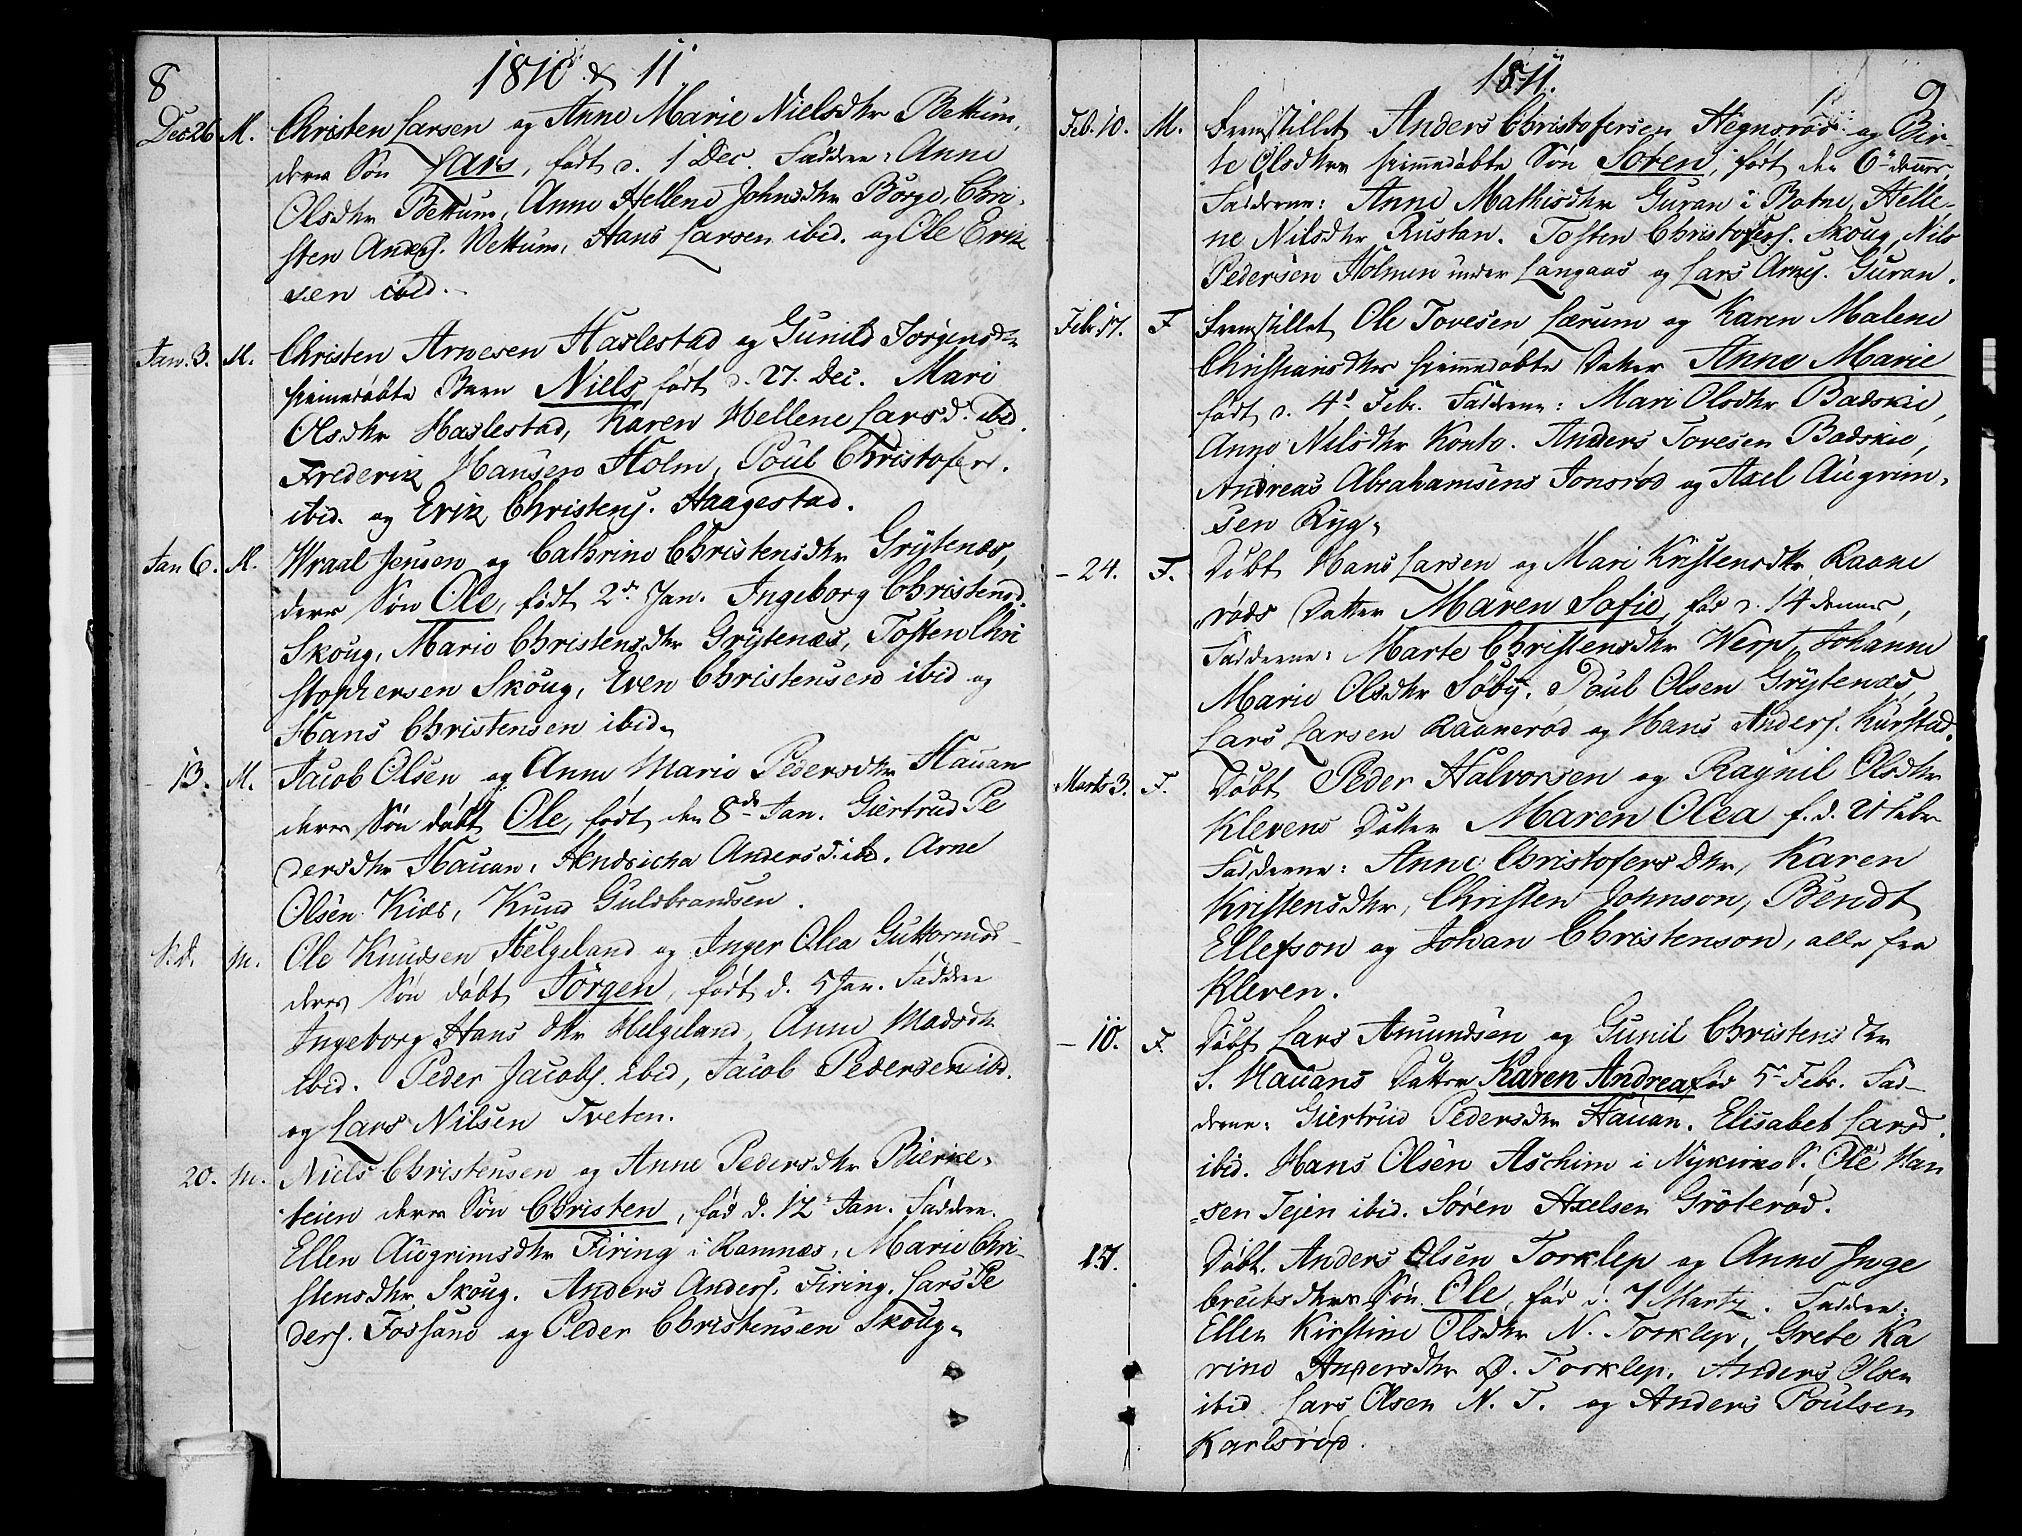 8
1810 & 11
Dec 26 M. Christen Larsen og Anne Marie Nielsdtr Bettum,
deres Søn Lars, født d. 1 Dec. Faddere: Anne
Olsdtr Bettum, Anne Hellene Johnsdtr Borge, Chri-
sten Anders. Bettum, Hans Larsen ibid. og Ole Erik
sen ibid.
Jan. 3. M. Christen Arnesen Haslestad og Gunild Jørgensdtr
hiemedøbte Barn Niels født d. 27. Dec. Mari
Olsdtr Haslestad, Karen Hellene Larsd. ibid.
Frederik Hansen Holm, Poul Christofers.
ibid. og Erik Christens. Haagestad.
Jan 6. M. Wraal Jensen og Cathrine Christensdtr Grytenæs,
deres Søn Ole, født 2d. Jan. Ingeborg Christensd.
Skoug, Marie Christensdtr Grytenæs, Tosten Chri
stophersen Skoug, Even Christensen ibid og
Hans Christensen ibid.
- 13. M. Jacob Olsen og Anne Marie Pedersdtr Hauan
deres Søn døbt Ole, født den 8de Jan. Giertrud Pe
dersdtr Hauan, Hendricha Andersd. ibid. Arne
Olsen Kiær, Knud Guldbrandsen.
S.d. M. Ole Knudsen Helgeland og Inger Olea Guttormsd
deres Søn døbt Jørgen, født d. 5 Jan. Faddere
Ingeborg Hans dtr Helgeland, Anne Madsdtr
ibid. Peder Jacobs. ibid, Jacob Pedersen ibd.
og Lars Nilsen Tveten.
20. M. Niels Christensen og Anne Pedersdtr Bierke-
teien deres Søn Christen, fød d. 12 Jan. Faddere.
Ellen Augrimsdtr Firing i Ramnæs, Marie Chri-
stensdtr Skoug. Anders Anders. Firing. Lars Pe
ders. Fossane og Peder Christensen Skoug.
1811.
9
Feb. 10. M. Fremstillet Anders Christofersen Hegnsrød og Bir-
te Olsdtrs hiemmedøbte Søn Søren, født den 6te dennes,
Fadderne: Anne Mathisdtr Guran i Botne, Helle-
ne Nilsdtr Rustan. Tosten Christofers. Skoug, Nils
Pedersen Holmen under Langaas og Lars Arnes. Guran.
Febr. 17. F Fremstillet Ole Tovesen Lærum og Karen Malene
Christiansdtrs hiemmedøbte Datter Anne Marie
født d. 4d Febr. Fadderne: Mari Olsdtr Badskie,
Anne Nilsdtr Konto. Anders Tovesen Badskie,
Andreas Abrahamsens Jonsrød og Axel Augrim-
sen Ryg.
- 24. F. Døbt Hans Larsen og Mari Kristensdtr Raane
røds Datter Maren Sofie, fød d. 14 dennes,
Fadderne: Marte Christensdtr Werp, Johanne
Marie Olsdtr Søby. Poul Olsen Grytenæs,
Lars Larsen Raanerød og Hans Anders. Kurstad.
Marts 3. F. Døbt Peder Halvorsen og Ragnil Olsdtr
Klevens Datter Maren Olea f. d. 21 Febr
Fadderne: Anne Christofers dtr, Karen
Kristensdtr, Christen Johnson, Bendt
Ellefson og Johan Christenson, alle fra
Kleven.
- 10. F. Døbt Lars Amundsen og Gunil Christens dtr
S. Hauans Datter Karen Andrea fød 5 Febr. Fad-
derne: Giertrud Pedersdtr Hauan. Elisabet Larsd.
ibid. Hans Olsen Aschim i Nykirke S. Ole Han
sen Tejen ibid. Søren Axelsen Gröterød.
17. Døbt. Anders Olsen Torklep og Anne Inge
breitsdtrs Søn Ole, fød d. 7 Marts. Faddere:
Ellen Kirstine Olsdtr N. Torklep, Grete Ka
rine Andersdtr Ø. Torklep. Anders Olsen
ibid Lars Olsen N. T. og Anders Poulsen
Karlsrød.